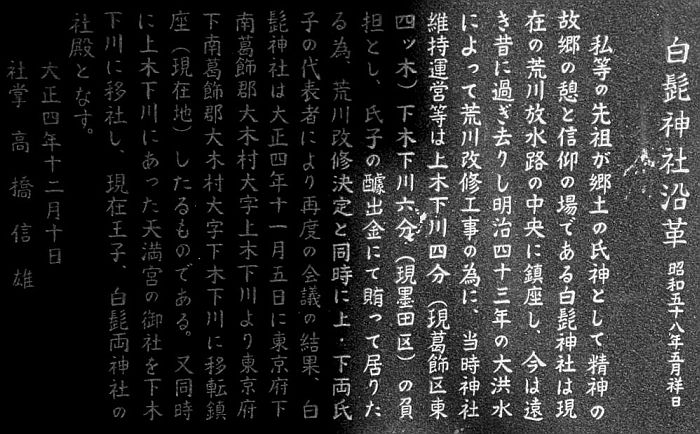 白髭神社沿革 昭和五十八年五月祥日
私等の先祖が郷土の氏神として精神の
故郷の憩と信仰の場である白髭神社は現
在の荒川放水路の中央に鎮座し、今は遠
き昔に過ぎ去りし明治四十三年の大洪水
によって荒川改修工事の為に、当時神社
維持運営等は上木下川四分(現葛飾区東
四ッ木)下木下川六分(現墨田区)の負
担とし、氏子の醵出金にて賄って居りた
る為、荒川改修決定と同時に上・下両氏
子の代表者により再度の会議の結果、白
髭神社は大正四年十一月五日に東京府下
南葛飾郡大木村大字上木下川より東京府
下南葛飾郡大木村大字下木下川に移転鎮
座(現在地)したるものである。又同時
に上木下川にあった天満宮の御社を下木
下川に移社し、現在王子、白髭両神社の
社殿となす。
大正四年十二月十日
社掌 高橋信雄